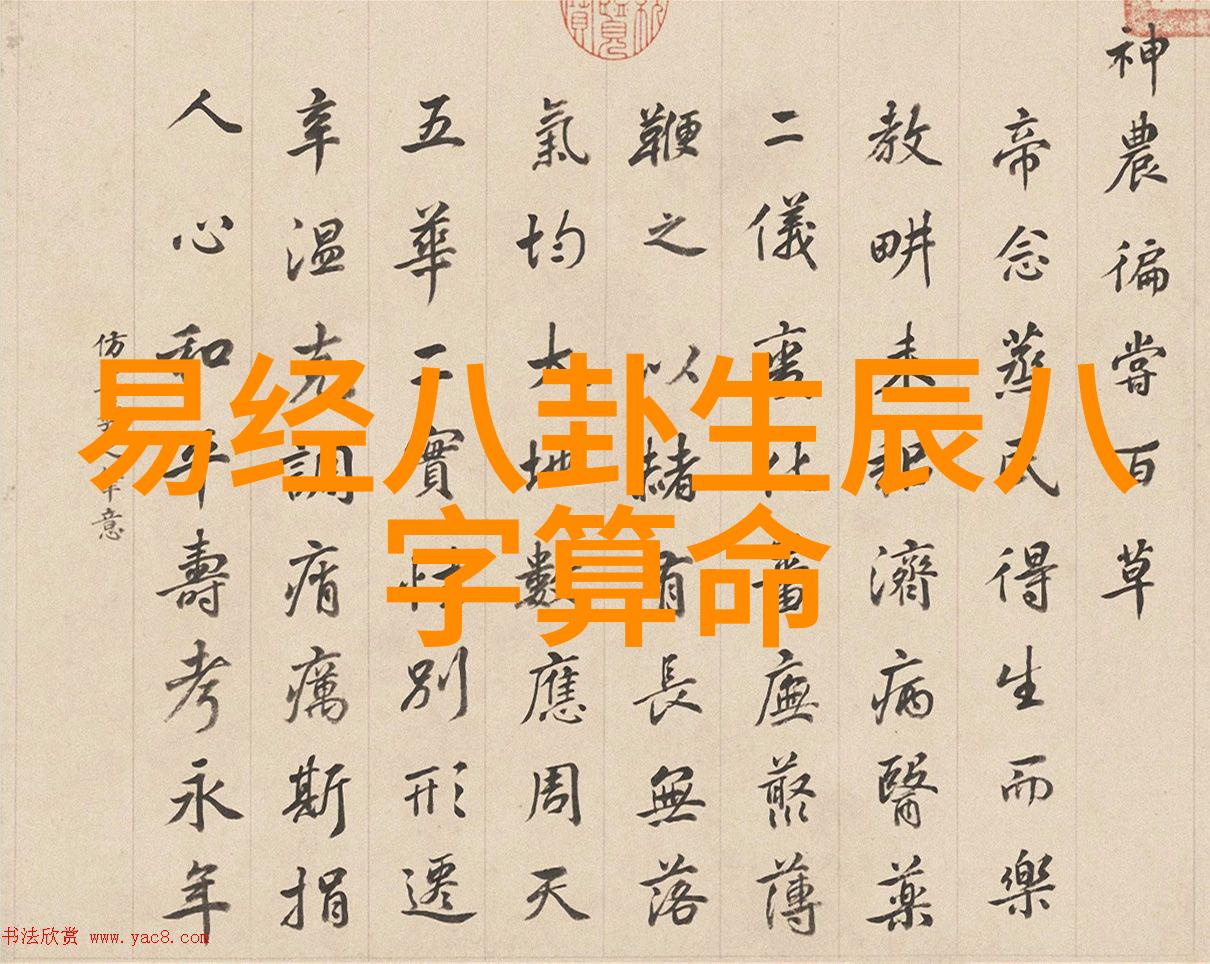 神農徧嘗百草
帝念蒸民得生而樂
教畊耒耜濟病醫藥
二儀化蓄薄
鞭之以赭有長無落
氣均大地數應周天
五華二實別形遷
辛温充調痟癘斯捐
人心和平壽考永年
仿意
易经八卦生辰八
字算命
书法欣赏 www.yac8.com